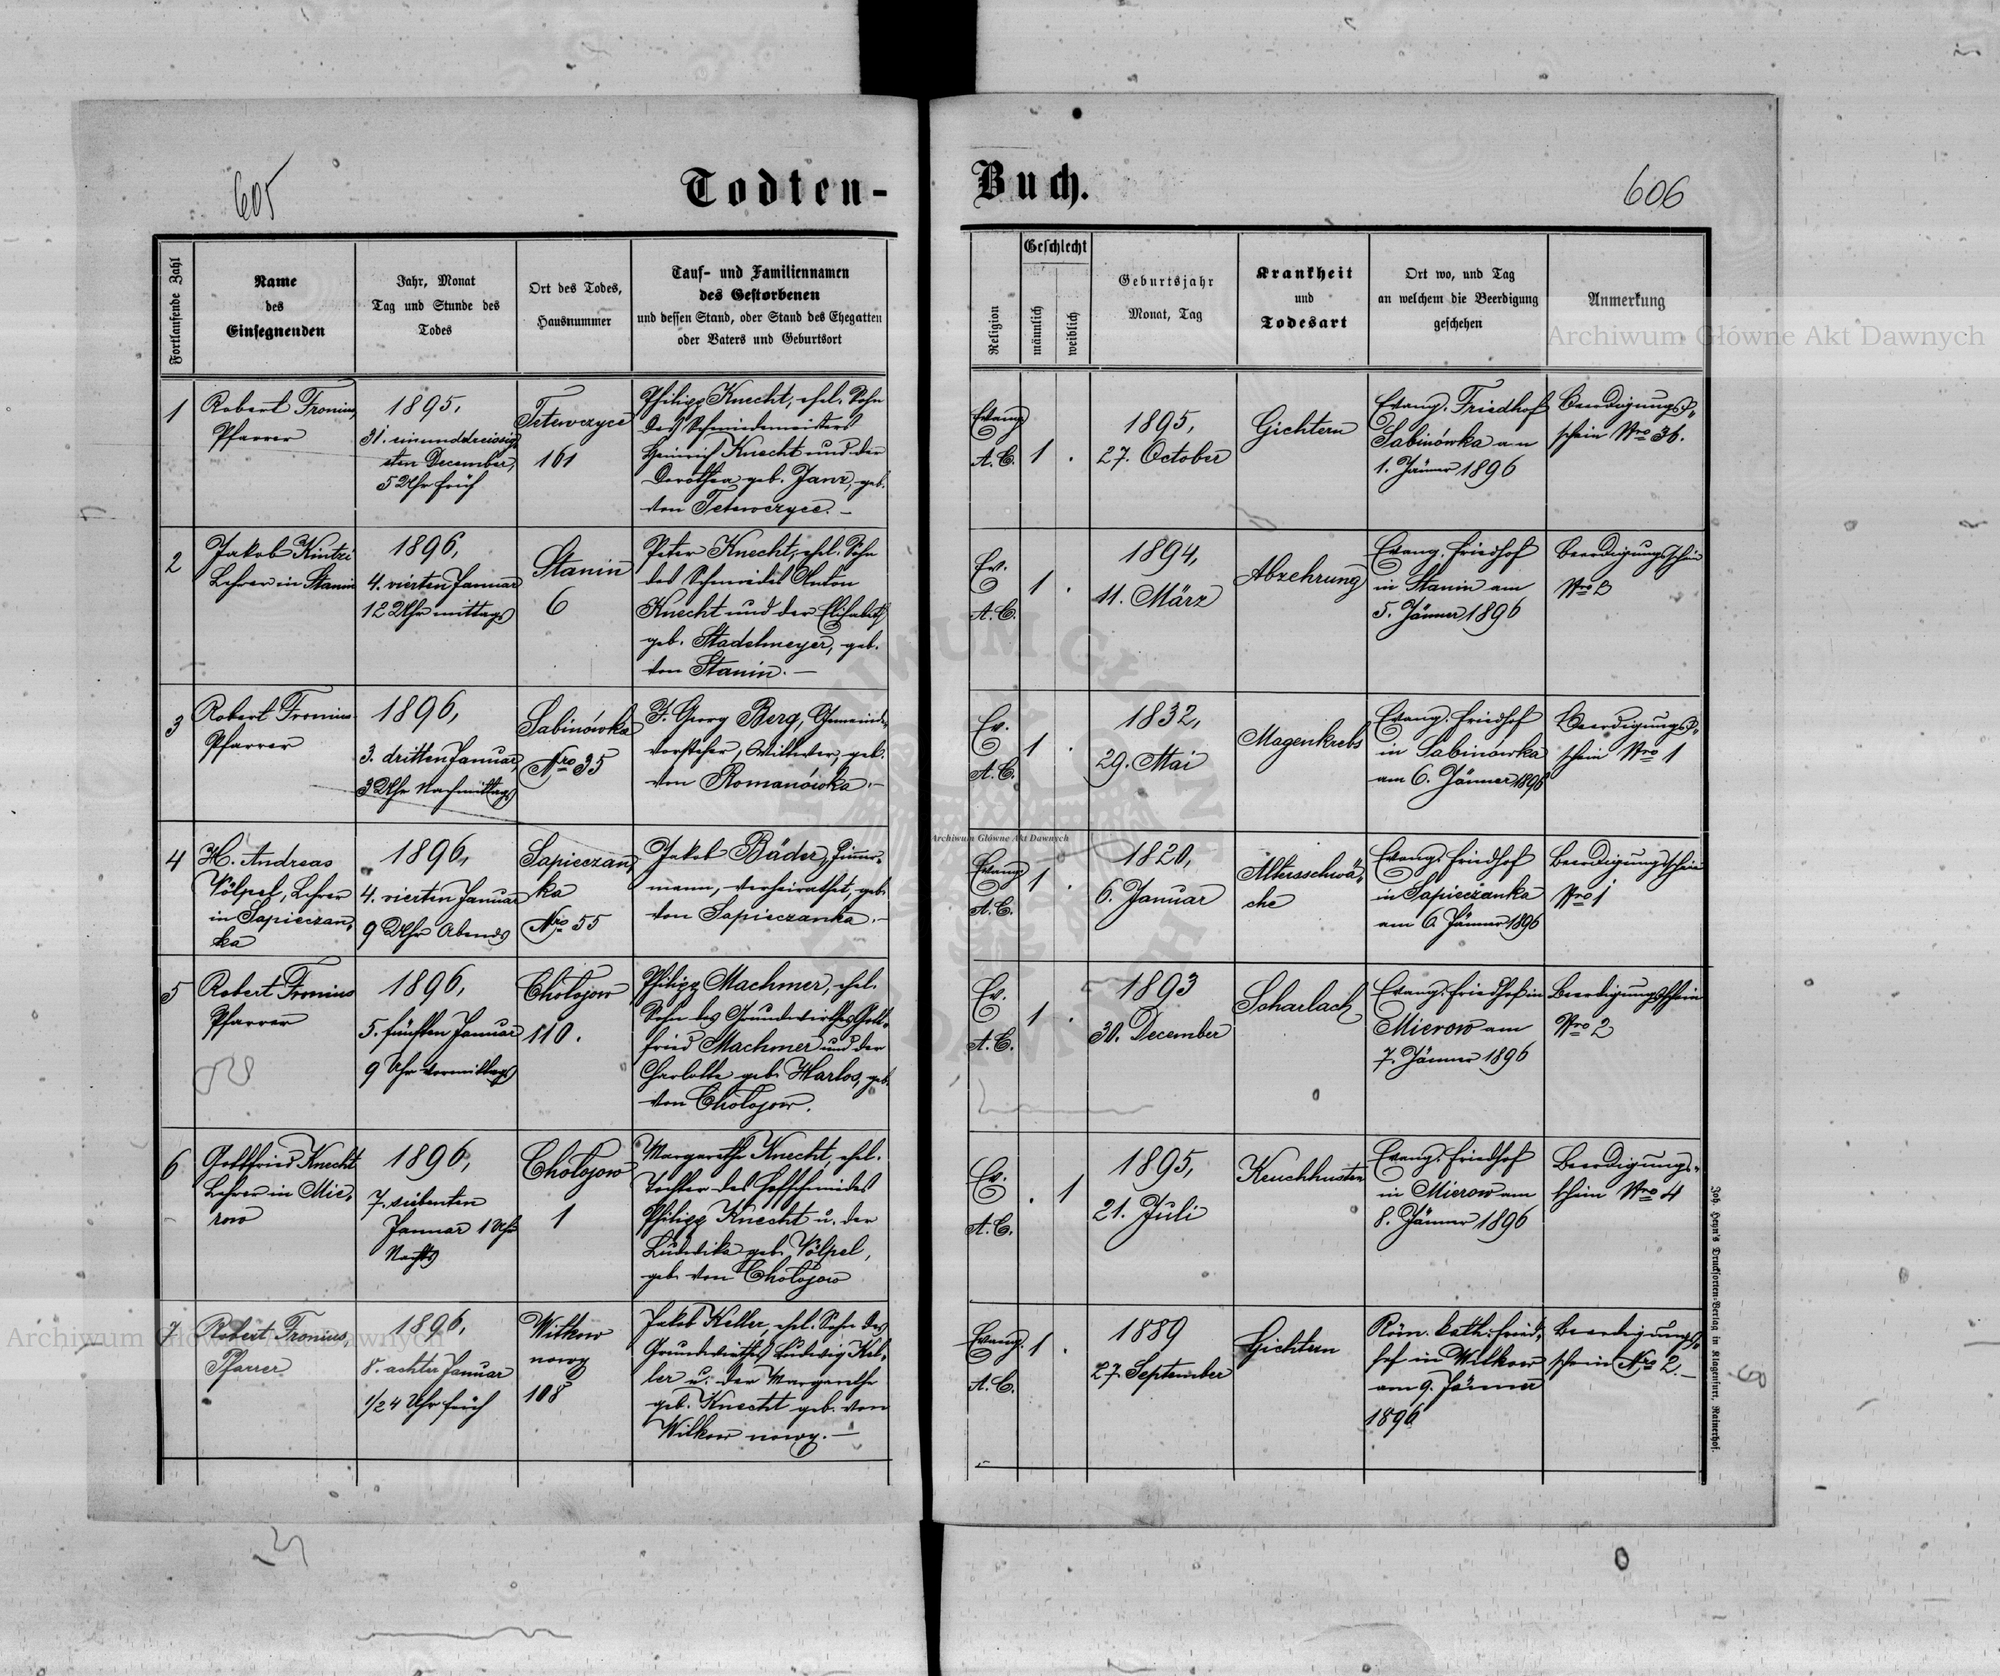 605
Todten-
Fortlaufende Zahl
Name
des
Einsegnenden
Jahr, Monat
Tag und Stunde des
Todes
Ort des Todes,
Hausnummer
Tauf- und Familiennamen
des Gestorbenen
und dessen Stand, oder Stand des Ehegatten
oder Vaters und Geburtsort
1
Robert Fronius,
Pfarrer
1895,
31. einunddreissig
sten December,
5 Uhr früh
Tetewczyce
161
Philipp Knecht, ehel. Sohn
des Schmiedemeisters
Heinrich Knecht und der
Dorothea geb. Janz, geb.
von Tetewczyce. —
2
Jakob Kintzi
Lehrer in Stanin
1896,
4. vierten Januar
12 Uhr mittags
Stanin
6
Peter Knecht, ehel. Sohn
des Schmiedes Anton
Knecht und der Elisabeth
geb. Stadelmeyer, geb.
von Stanin. —
3
Robert Fronius
Pfarrer
1896,
3. dritten Januar,
3 Uhr Nachmittags
Sabinówka
Nro 35
F. Georg Berg, Gemeinde-
vorsteher, Wittwer, geb.
von Romanówka. —
4
H. Andreas
Völpel, Lehrer
in Sapieczan-
ka
1896,
4. vierten Januar
9 Uhr Abends
Sapieczan-
ka
Nro 55
Jakob Bäder, Zimmer-
mann, verheirathet, geb.
von Sapieczanka. —
5
Robert Fronius
Pfarrer
1896,
5. fünften Januar
9 Uhr vormittags
Cholojow
110.
Philipp Machmer, ehel.
Sohn des Grundwirthes Gott-
fried Machmer und der
Charlotte geb. Harlos, geb.
von Cholojow.
6
Gottfried Knecht
Lehrer in Mie-
row
1896,
7. siebenten
Januar 1 Uhr
Nachts
Cholojow
1
Margarethe Knecht, ehel.
Tochter des Hofschmiedes
Philipp Knecht u. der
Ludwika geb. Völpel,
geb. von Cholojow
7
Robert Fronius,
Pfarrer
1896,
8. achter Januar
1/2 4 Uhr früh
Witkow
nowy
108
Jakob Keller, ehel. Sohn des
Grundwirthes Ludwig Kel-
ler u. der Margarethe
geb. Knecht geb. von
Witkow nowy. —
Buch.
606
Religion
Geschlecht
männlich
weiblich
Geburtsjahr
Monat, Tag
Krankheit
und
Todesart
Ort wo, und Tag
an welchem die Beerdigung
geschehen
Anmerkung
Evang.
A. C.
1 .
1895,
27. October
Gichtern
Evang. Friedhof
Sabinówka am
1. Jänner 1896
Beerdigungs-
schein Nro 36.
Ev.
A. C.
1 .
1894,
11. März
Abzehrung
Evang. Friedhof
in Stanin am
5. Jänner 1896
Beerdigungsschein
Nro 3
Ev.
A. C.
1 .
1832,
29. Mai
Magenkrebs
Evang. Friedhof
in Sabinówka
am 6. Jänner 1896
Beerdigungs-
schein Nro 1
Evang.
A. C.
1 .
1820,
6. Januar
Altersschwä-
che
Evang. Friedhof
in Sapieczanka
am 6. Jänner 1896
Beerdigungsschein
Nro 1
Ev.
A. C.
1 .
1893
30. December
Scharlach
Evang. Friedhof in
Mierow am
7. Jänner 1896
Beerdigungsschein
Nro 2
Ev.
A. C.
. 1
1895,
21. Juli
Keuchhusten
Evang. Friedhof
in Mierow am
8. Jänner 1896
Beerdigungs-
schein Nro 4
Evang.
A. C.
1 .
1889
27. September
Gichtern
Röm. kath. Fried-
hof in Witkow
am 9. Jänner
1896
Beerdigungs-
schein Nro 2. —
Joh. Heyn's Drucksorten-Verlag in Klagenfurt, Rainerhof.
Archiwum Główne Akt Dawnych
Archiwum Główne Akt Dawnych
Archiwum Główne Akt Dawnych
ARCHIWUM GŁÓWNE AKT DAWNYCH